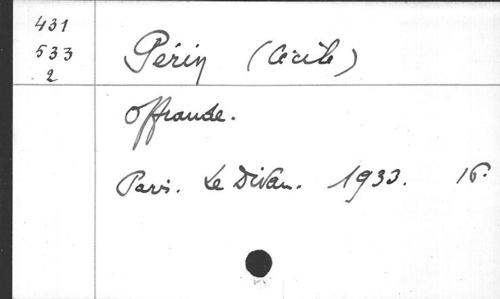 431
533
2
Périn (Cécile)
Offrande.
Paris. Le Divan. 1933. 16°